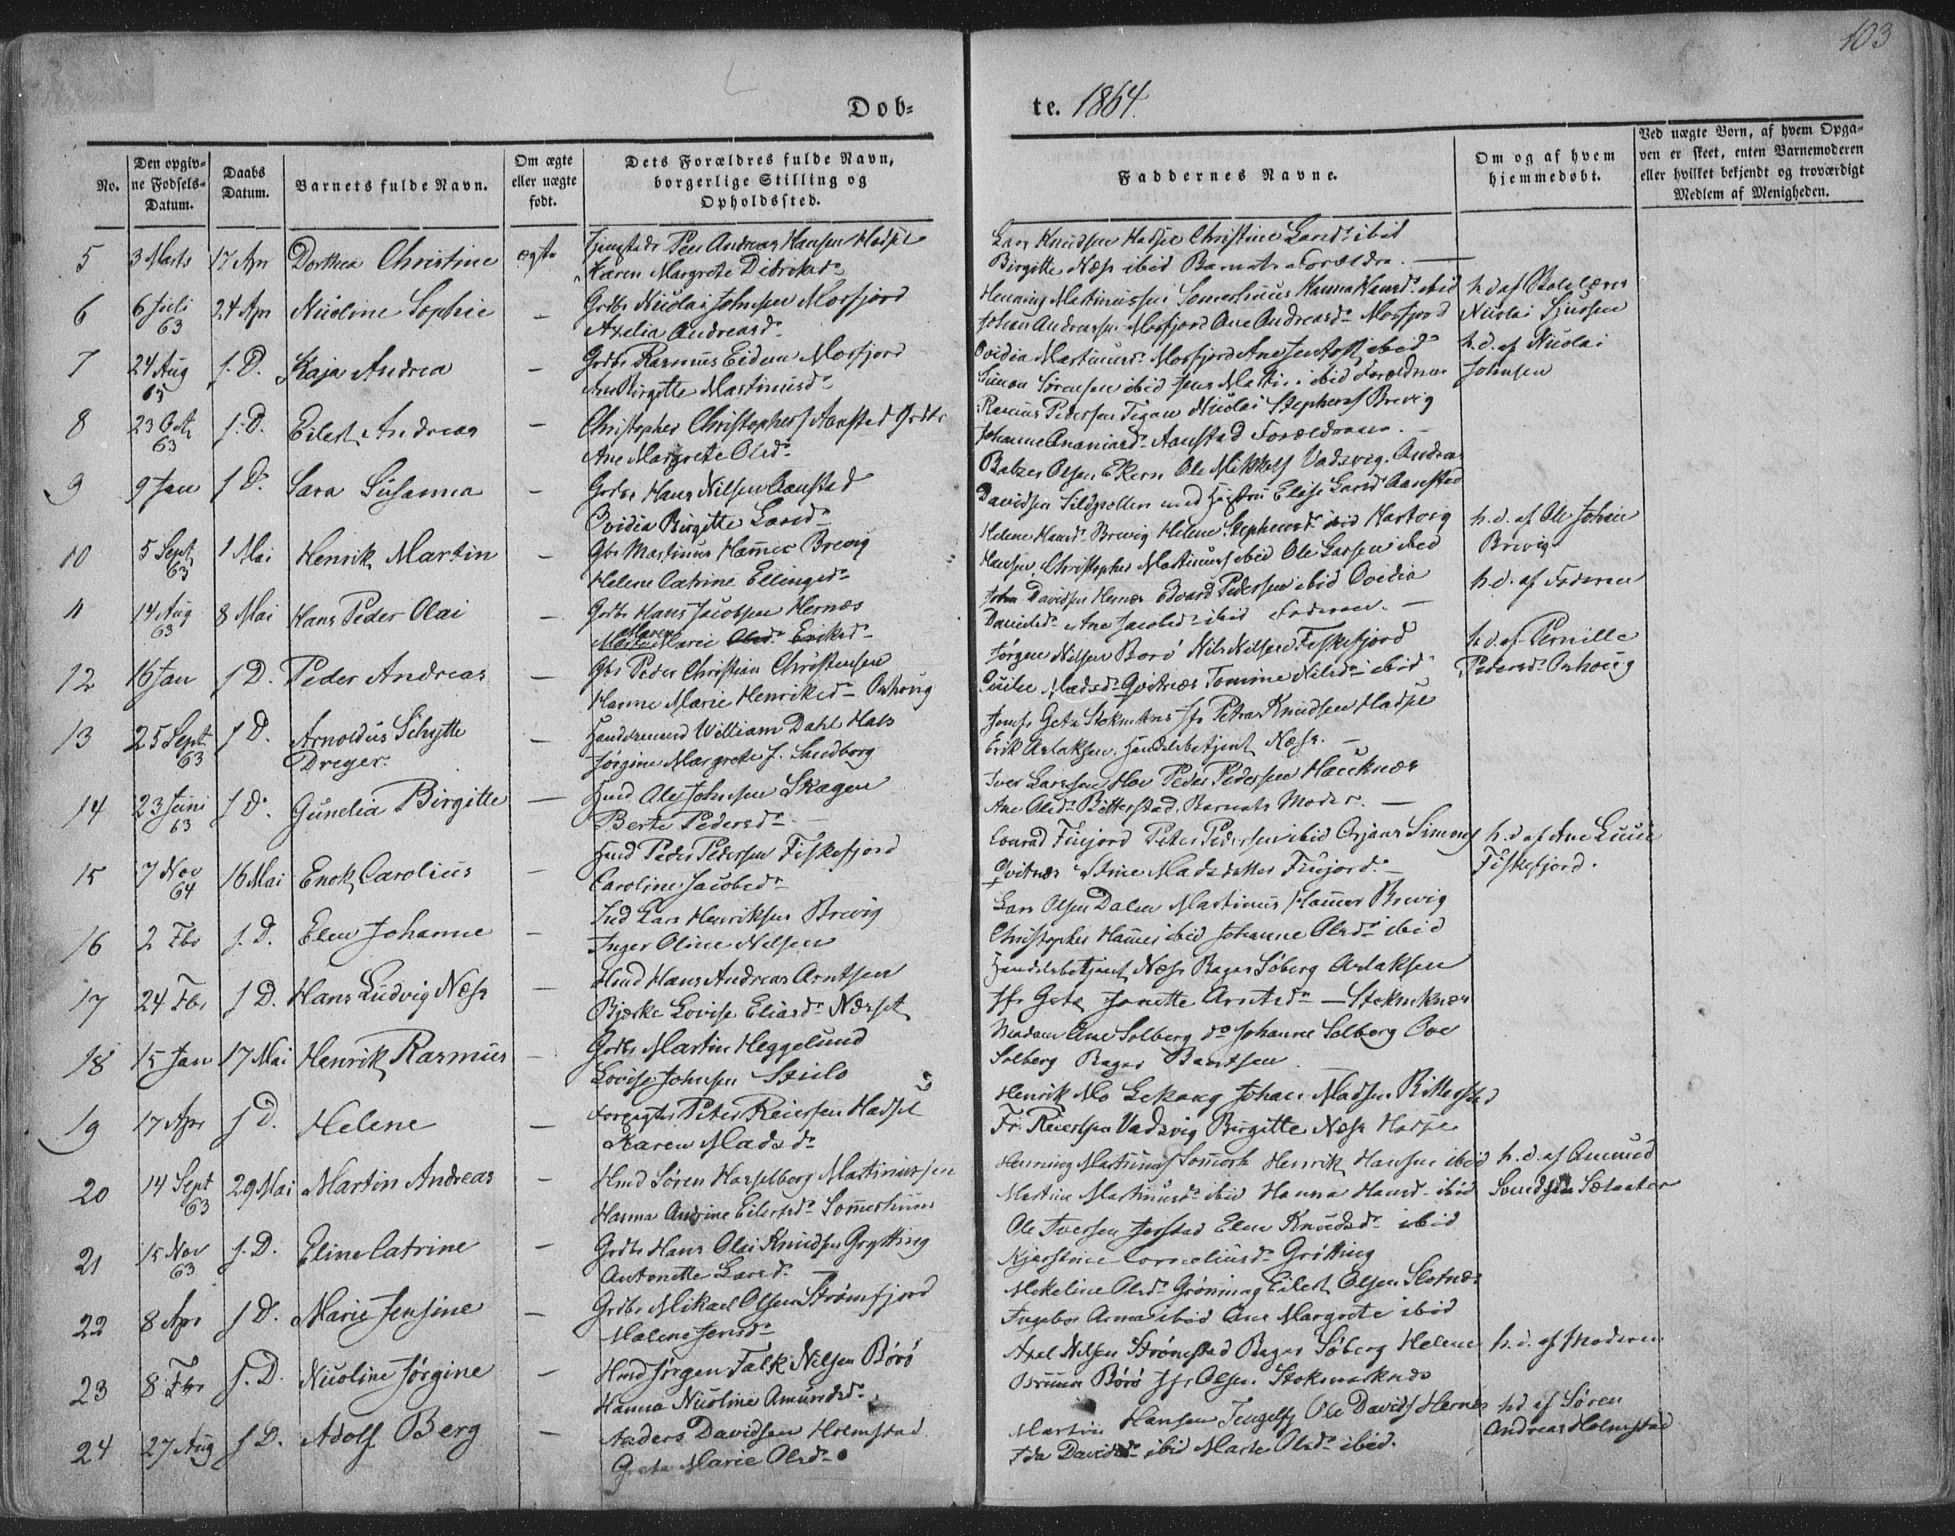 103
Døb=
te. 1864.
No.
Den opgiv-
ne Fødsels-
Datum.
Daabs
Datum.
Barnets fulde Navn.
Om ægte
eller uægte
født.
Dets Forældres fulde Navn,
borgerlige Stilling og
Opholdssted.
Faddernes Navne.
Om og af hvem
hjemmedøbt.
Ved uægte Børn, af hvem Opga-
ven er skeet, enten Barnemoderen
eller hvilket bekjendt og troværdigt
Medlem af Menigheden.
5 3 Marts 17 Apr Dorthea Christine ægte
Peer Andreas Hansen Hadsel
Karen Margrete Didriksd.
Lars Knudsen Hadsel Christine Larsd. ibid
Birgitte Næss ibid Barnets Forældre. —
6 6 Juli 63 24 Apr Nicoline Sophie —
Grdbr Nicolai Johnsen Mosfjord
Axelia Andreasd.
Henning Martinussen Somerhuus Hanna Hansd. ibid
Johan Andreassen Mosfjord Ane Andreasd. Mosfjord
h. d. af Skolelærer
Nicolai
7 24 Aug 63 s. D. Kaja Andrea —
Grdbr Rasmus Eidum Mosfjord
Ane Birgitte Martinusd.
Ovidia Martinusd. Mosfjord Ane ibid
Simon Sørensen ibid Jens ibid Forældrene
h. d. af Nicolai
Johnsen
8 23 Oct 63 s. D. Eilert Andreas —
Christopher Christophers Aanstad Grdbr
Ane Margrete Olsd.
Rasmus Pedersen Nicolai Stephens Brevig
Johanne Ananiasd. Aanstad Forældrene. —
9 9 Jan s D. Sara Susanna —
Grdbr Hans Nilsen Aanstad
Ovidia Birgitte Larsd.
Baltzer Olsen Ekern Ole Mikkels Vadsvig. Andreas
Davidsen Sildpollen med Hustru Elise Larsd Aanstad
10 5 Sept 63 1 Mai Henrik Martin —
Gbr Martinus Hammer Brevig
Helene Catrine Ellingsd.
Helene Hansd. Brevig Helene Stephensd. ibid Hartvig
Hansen Christopher Martinuss ibid Ole Larsen ibid
h. d. af Ole Johan
Brevig
11 14 Aug 63 8 Mai Hans Peder Olai —
Grdbr Hans Jacobsen Hernæs
Maren
Marie Olsd. Eriksd.
John Davidsen Hernæs Edvard Pedersen ibid Ovidia
Davidsd. Ane Jacobsd. ibid Faderen. —
h. d. af Faderen
12 16 Jan s D. Peder Andreas —
Gbr Peder Christian Christensen
Hanne Marie Henriksd. Oshoug
Jørgen Nilsen Borø Nils Nilsen Fiskefjord
Madsd. Qvitnæs Tomine Nilsd. ibid
h. d. af Pernille
Pedersd. Oshoug
13 25 Sept 63 s D. Arnoldus Schytte
Dreyer. —
Handelsmand William Dahl Hals
Jørgine Margrete f. Sandborg
Jomfr Gete Stokmknes Jfr Petra Knudsen Hadsel
Erik Aslaksen. Handelsbetjent Næss. —
14 23 Juni 63 s D. Gunelia Birgitte —
Hmd Ole Johnsen Skagen
Berte Pedersd. —
Iver Larssen Hov Peder Pedersen Haucknæs
Ane Olsd. Bitterstad. Barnets Moder. —
15 7 Nov 64 16 Mai Enok Carolius —
Hmd Peder Pedersen Fiskefjord
Caroline Jacobsd.
Conrad Finjord Peter Pedersen ibid Ørjans Simons
Qvitnæs Stine Madsdatter Finjord. —
h. d af Ane
Fiskefjord.
16 2 Fbr s. D. Elen Johanne —
Ind Lars Henriksen Brevig
Inger Oline Nilsen
Lars Olsen Dalen Martinus Hammer Brevig
Christopher Hammer ibid Johanne Olsd. ibid
17 24 Fbr s D. Hans Ludvig Næss —
Hmd Hans Andreas Arntsen
Bjerke Lovise Eliasd. Nærset
Handelsbetjent Næss Bager Søberg Aslaksen
Jfr Gete Jonette Arntsd. — Stokmknæs
18 15 Jan 17 Mai Henrik Rasmus —
Grdbr Martin Heggelund
Lovise Johnsen Stielo
Madam Ane Solberg do Johanne Solberg Ove
Solberg Bager Berntsen
19 17 Apr s D. Helene —
Forpagter Peter Reiersen Hadsel
Karen Madsd.
Henrik Mo Gekang Johan Madsen Bitterstad
Fr. Reiersen Vadsvig Birgitte Næss Hadsel
20 14 Sept 63 29 Mai Martin Andreas —
Hmd Søren Hasselberg Martinussen
Hanna Andrine Eilertsd. Somerhuus
Henning Martinuss Somerh Henrik Hansen ibid
Martine Martinusd. ibid Hanna Hansd. ibid
h. d. af Amund
Svendsen Sætaater
21 15 Nov 63 s. D. Eline Catrine —
Grdbr Hans Olai Knudsen Grytting
Antonette Larsd. —
Ole Iversen Jorstad Elen Knudsd. ibid
Kjerstine Corneliusd. Grøtting
22 8 Apr s D. Marie Jensine —
Grdbr Mikael Olsen Strømfjord
Malene Jensd.
Mekeline Olsd. Grønning Eilert Olsen Slotnæs
Ingebor Anna ibid Ane Margrete ibid
23 8 Fbr s. D. Nicoline Jørgine —
Hmd Jørgen Falk Nilsen Børø
Hanna Nicoline Amundsd.
Axel Nilsen Strømstad Bager Søberg Helene
Bruun Børø Jfr Olsen Stokmarknæs
h. d. af Moderen
24 27 Aug s D. Adolf Berg —
Anders Davidsen Holmstad
Grete Marie Olsd.
Martin Hansen Ole Davids Hernæs
Ida Davidsd. ibid Marte Olsd. ibid.
h d af Søren
Andreas Holmstad